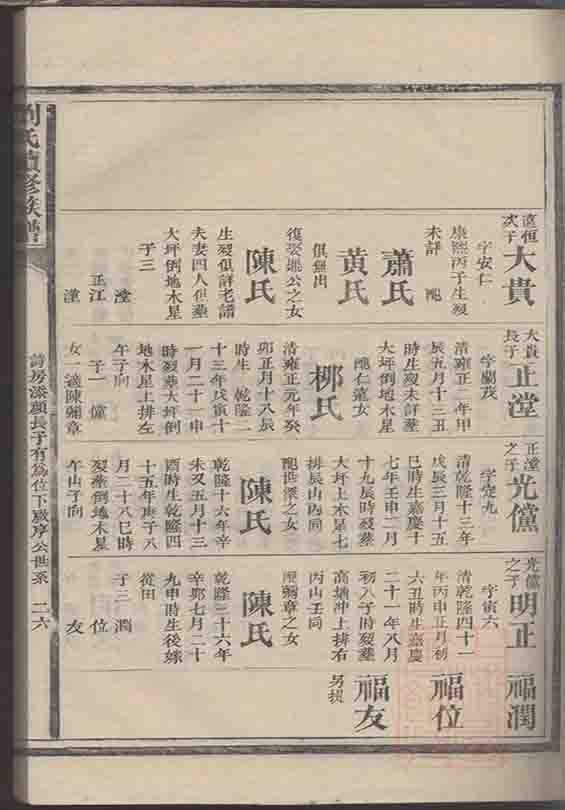 道恒
次子
大貴
字安仁
康熙丙子生歿
未詳 配
蕭氏
黄氏
俱無出
復娶
公之女
陳氏
生歿俱詳老譜
夫妻四人俱塟
大坪倒地木星
子三
正江
大貴
長子
正瀅
字
清雍正二年甲
辰五月十三丑
時生歿未詳塟
大坪倒地木星
配仁
女
柳氏
清雍正元年癸
卯正月十八辰
時生 乾隆二
十三年戊寅十
一月二十一申
時歿塟大坪倒
地木星上排左
午子向
子一 儻
女 適陳
章
正瀅
之子
光儻
字定九
清乾隆十三年
戊辰三月十五
巳時生嘉慶十
七年壬申二月
十九辰時歿塟
大坪上木星七
排辰山
向
配世傑之女
陳氏
乾隆十六年辛
未又五月十三
酉時生乾隆四
十五年庚子八
月二十八巳時
歿塟倒地木星
午山子向
光儻
之子
明正
字寅六
清乾隆四十一
年丙申正月初
六丑時生嘉慶
二十一年八月
初八子時歿塟
高塘冲上排右
丙山壬向
配
章之女
陳氏
乾隆三十六年
辛卯七月二十
九申時生後嫁
從田
子三 潤
位
友
福潤
福位
福友
另提
劉氏續修族譜
詩房添顔長子有爲位下嚴序公世系 二六